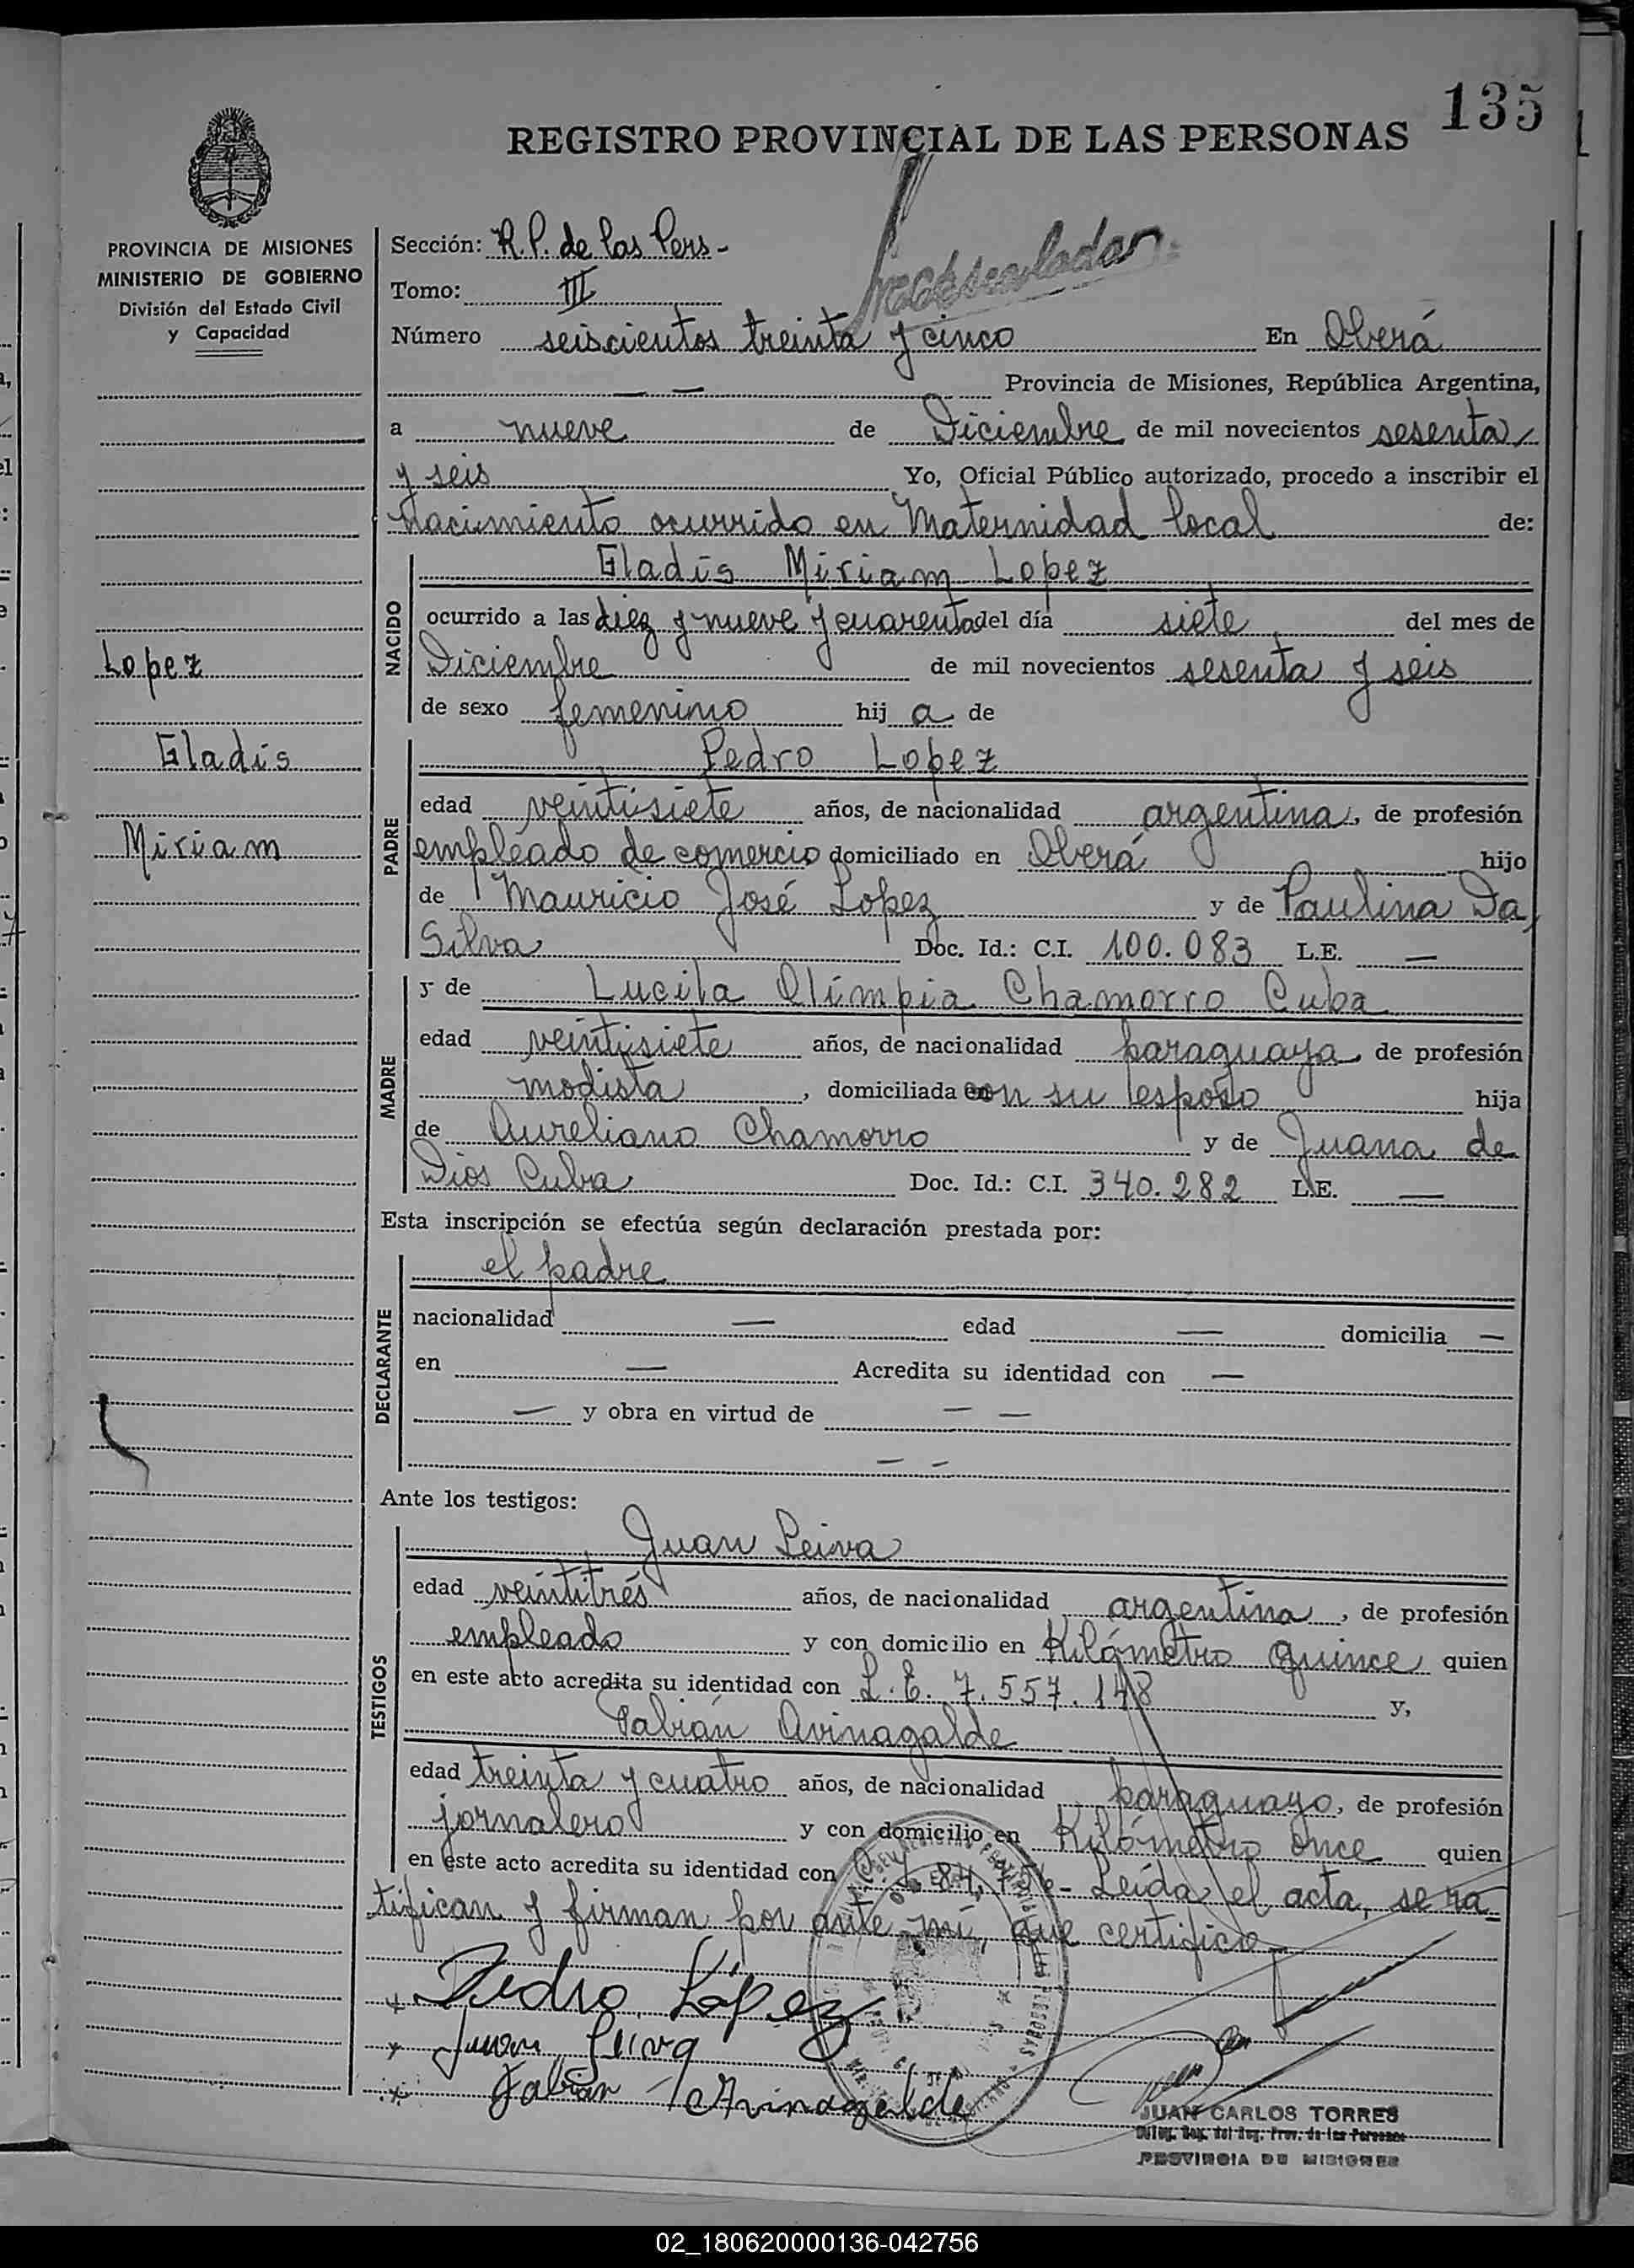 135
REGISTRO PROVINCIAL DE LAS PERSONAS
PROVINCIA DE MISIONES
MINISTERIO DE GOBIERNO
División del Estado Civil
y Capacidad
Lopez
Gladis
Miriam
Sección: R.P. de las Pers-
Tomo: III
Número seiscientos treinta y cinco En Oberá
— — Provincia de Misiones, República Argentina,
a nueve de Diciembre de mil novecientos sesenta
y seis Yo, Oficial Público autorizado, procedo a inscribir el
nacimiento ocurrido en Maternidad local de:
NACIDO
Gladis Miriam Lopez
ocurrido a las diez y nueve y cuarenta del día siete del mes de
Diciembre de mil novecientos sesenta y seis
de sexo femenino hij a de
PADRE
Pedro Lopez
edad veintisiete años, de nacionalidad argentina, de profesión
empleado de comercio domiciliado en Oberá hijo
de Mauricio José Lopez y de Paulina Da
Silva Doc. Id.: C.I. 100.083 L.E. —
MADRE
y de Lucila Olímpia Chamorro Cuba
edad veintisiete años, de nacionalidad paraguaya, de profesión
modista, domiciliada con su esposo hija
de Aureliano Chamorro y de Juana de
Dios Cuba Doc. Id.: C.I. 340.282 L.E. —
Esta inscripción se efectúa según declaración prestada por:
DECLARANTE
el padre
nacionalidad — edad — domicilia —
en — Acredita su identidad con —
— y obra en virtud de — —
— —
Ante los testigos:
TESTIGOS
Juan Leiva
edad veintitrés años, de nacionalidad argentina, de profesión
empleado y con domicilio en Kilómetro quince quien
en este acto acredita su identidad con L.E. 7.557.148 y,
Fabián Avinagalde
edad treinta y cuatro años, de nacionalidad paraguayo, de profesión
jornalero y con domicilio en Kilómetro once quien
en este acto acredita su identidad con Leída el acta, se ra-
tifican y firman por ante mí, que certifico
x Pedro López
x Juan Leiva
x Fabián Avinagalde
JUAN CARLOS TORRES
PROVINCIA DE MISIONES
02_180620000136-042756